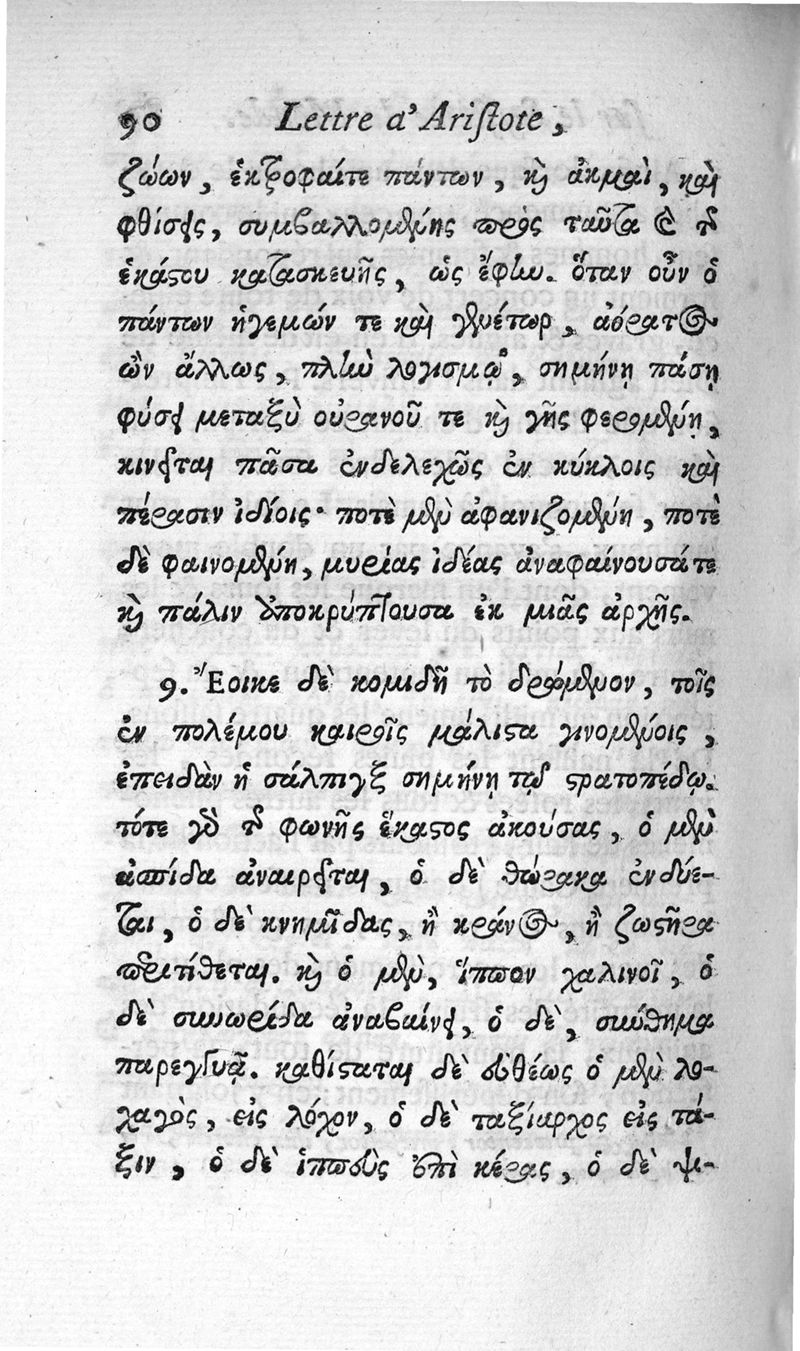 90 Lettre d'Aristote,
ζώων, ἐκτροφαίτε πάντων, καὶ ἀκμαὶ, καὶ
φθίσεις, συμβαλλομένης πρὸς ταῦτα καὶ τῆς
ἑκάστου κατασκευῆς, ὡς ἔφην. ὅταν οὖν ὁ
πάντων ἡγεμών τε καὶ γενέτωρ, ἀόρατος
ὢν ἄλλως, πλὴν λογισμῷ, σημήνῃ πάσῃ
φύσει μεταξὺ οὐρανοῦ τε καὶ γῆς φερομένῃ,
κινεῖται πᾶσα ἐνδελεχῶς ἐν κύκλοις καὶ
πέρασιν ἰδίοις· ποτὲ μὲν ἀφανιζομένη, ποτὲ
δὲ φαινομένη, μυρίας ἰδέας ἀναφαίνουσάτε
καὶ πάλιν ἀποκρύπτουσα ἐκ μιᾶς ἀρχῆς.
9. Ἔοικε δὲ κομιδῆ τὸ δρώμενον, τοῖς
ἐν πολέμου καιροῖς μάλιστα γινομένοις,
ἐπειδὰν ἡ σάλπιγξ σημήνῃ τῷ στρατοπέδῳ.
τότε γὰρ τῆς φωνῆς ἕκαστος ἀκούσας, ὁ μὲν
ἀσπίδα ἀναιρεῖται, ὁ δὲ θώρακα ἐνδύε-
ται, ὁ δὲ κνημῖδας, ἢ κράνος, ἢ ζωστῆρα
περιτίθεται. καὶ ὁ μὲν, ἵππον χαλινοῖ, ὁ
δὲ συνωρίδα ἀναβαίνει, ὁ δὲ, σύνθημα
παρεγγυᾷ. καθίσταται δὲ εὐθέως ὁ μὲν λο-
χαγὸς, εἰς λόχον, ὁ δὲ ταξίαρχος εἰς τά-
ξιν, ὁ δὲ ἱππεὺς ἐπὶ κέρας, ὁ δὲ ψι-